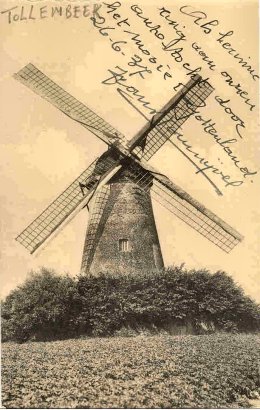 TOLLEMBEEK
Als herinne
ring aan onzen
auto tocht door
het mooie Pajottenland.
26.6.37